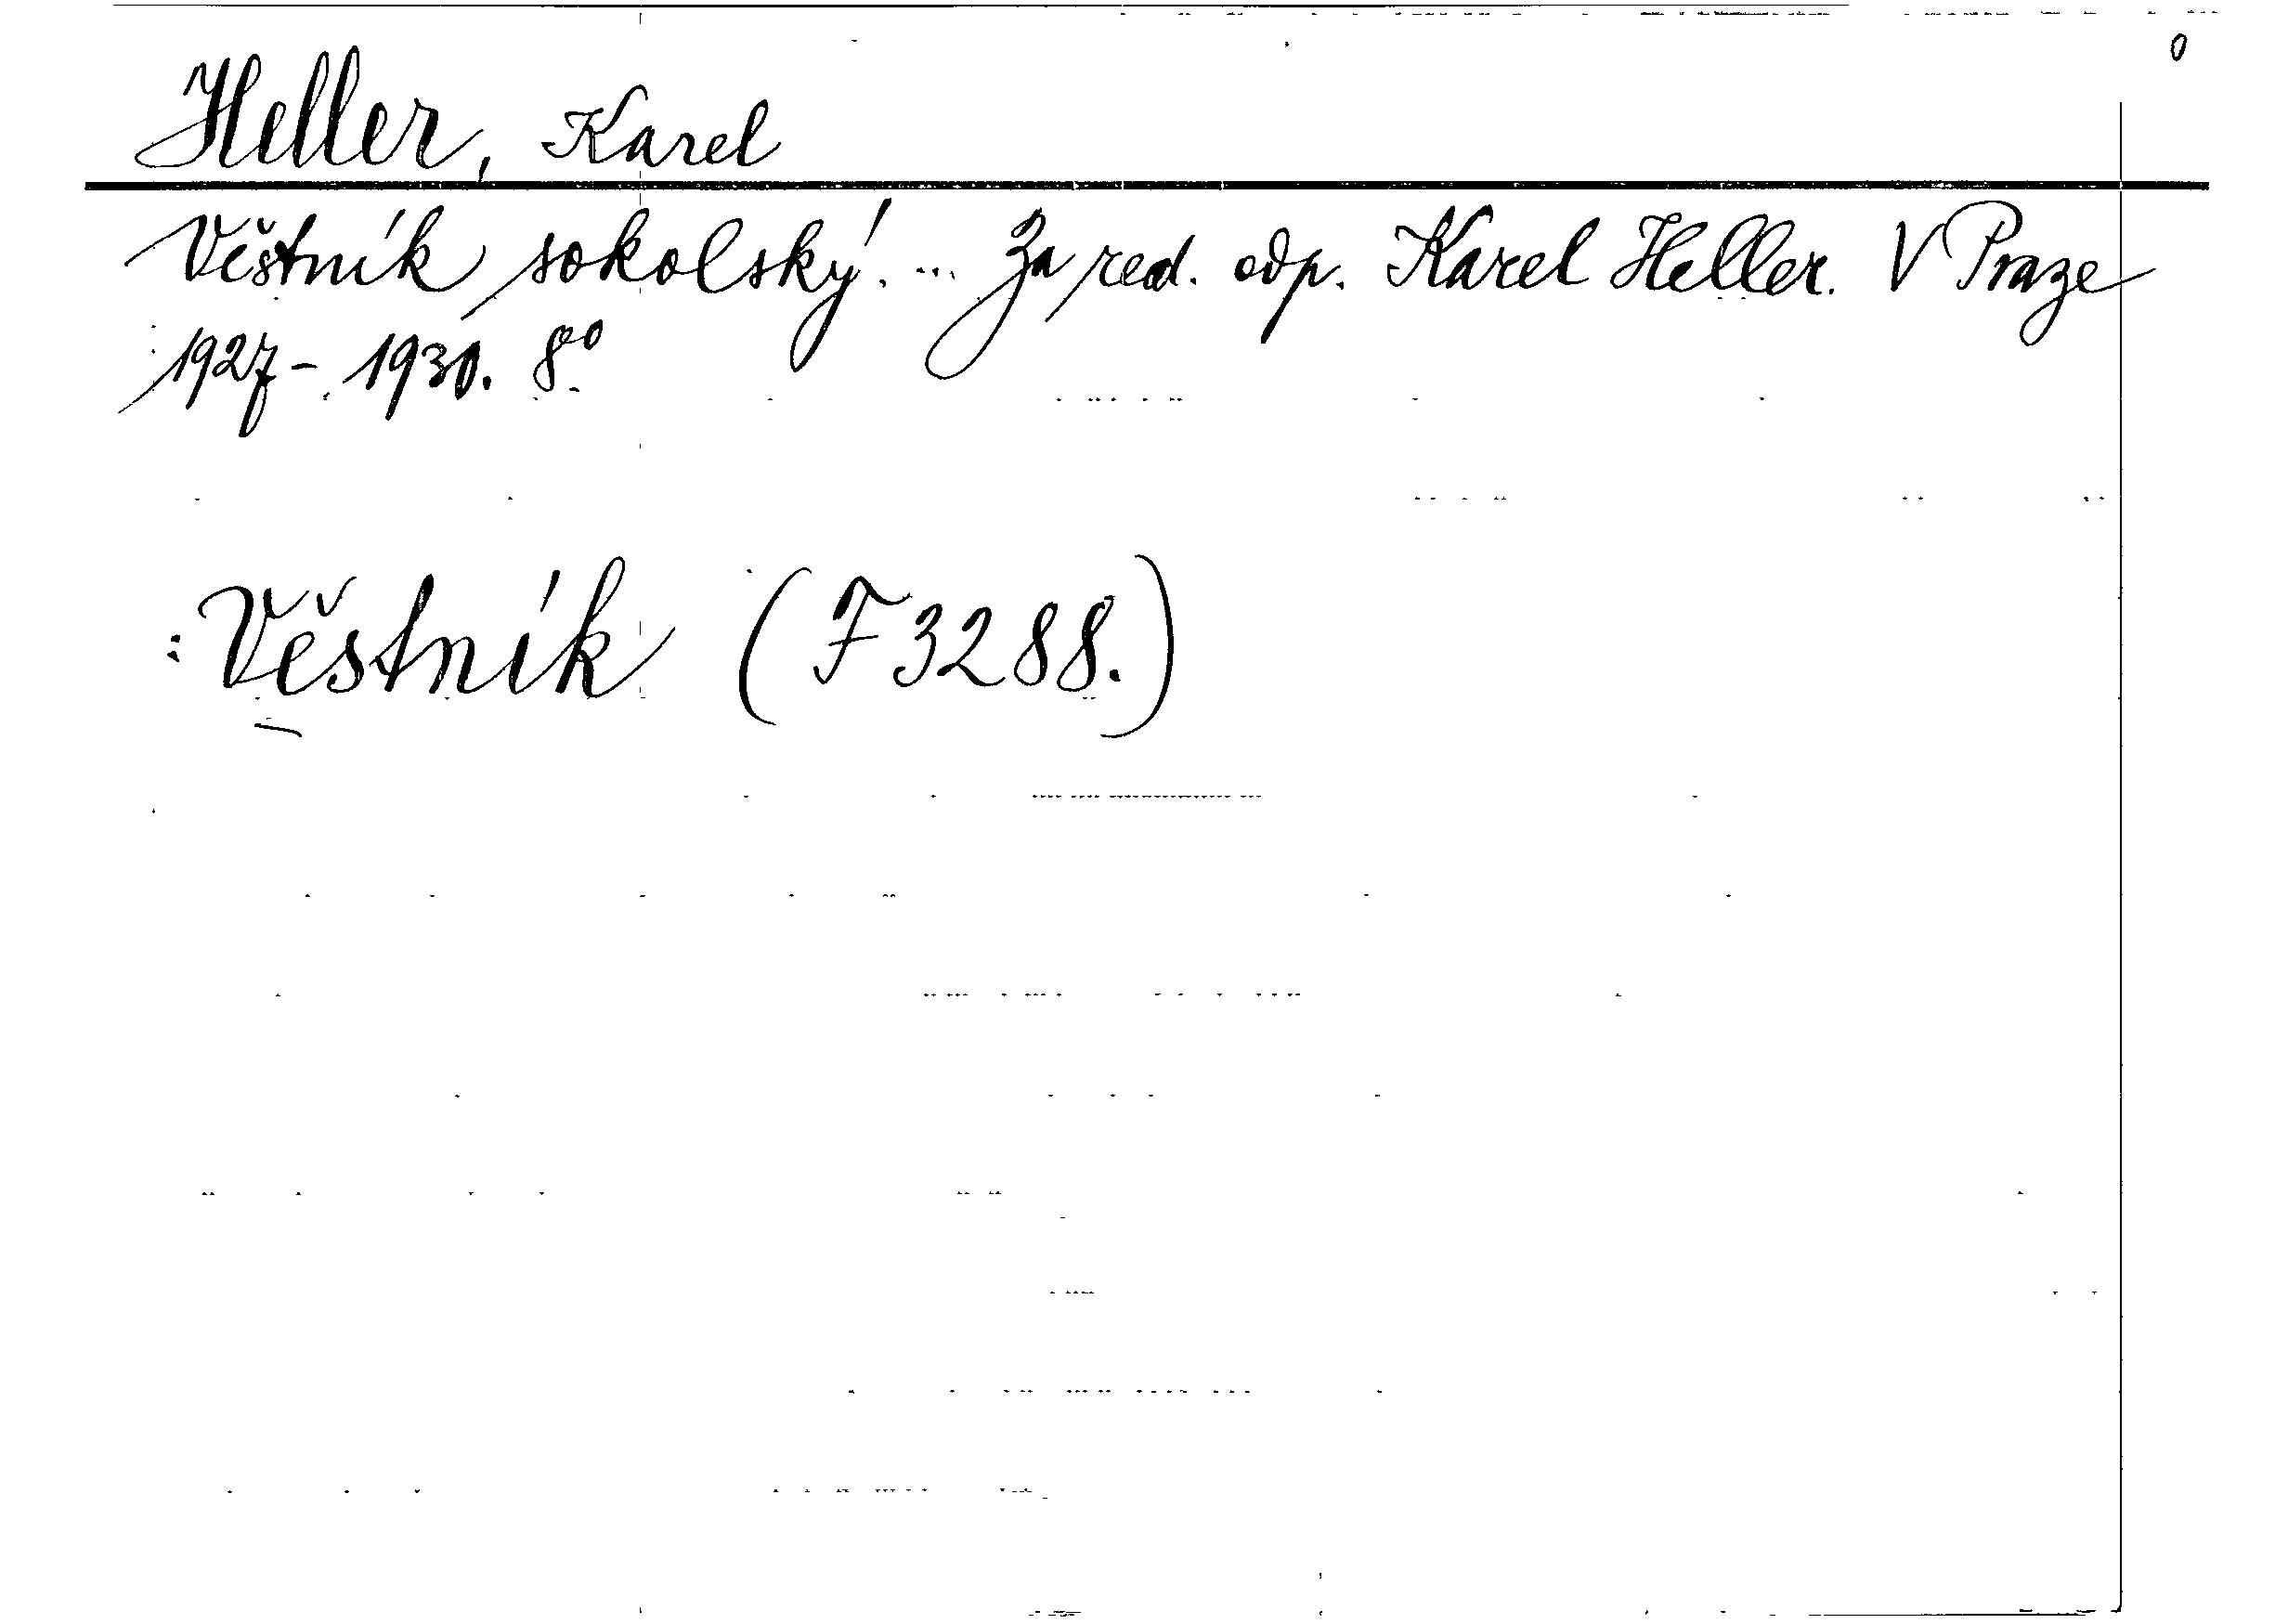 0
Heller, Karel
Věstník sokolský. ... Za red. odp. Karel Heller. V Praze
1927 - 1930. 8º
: Věstník (F 3288.)